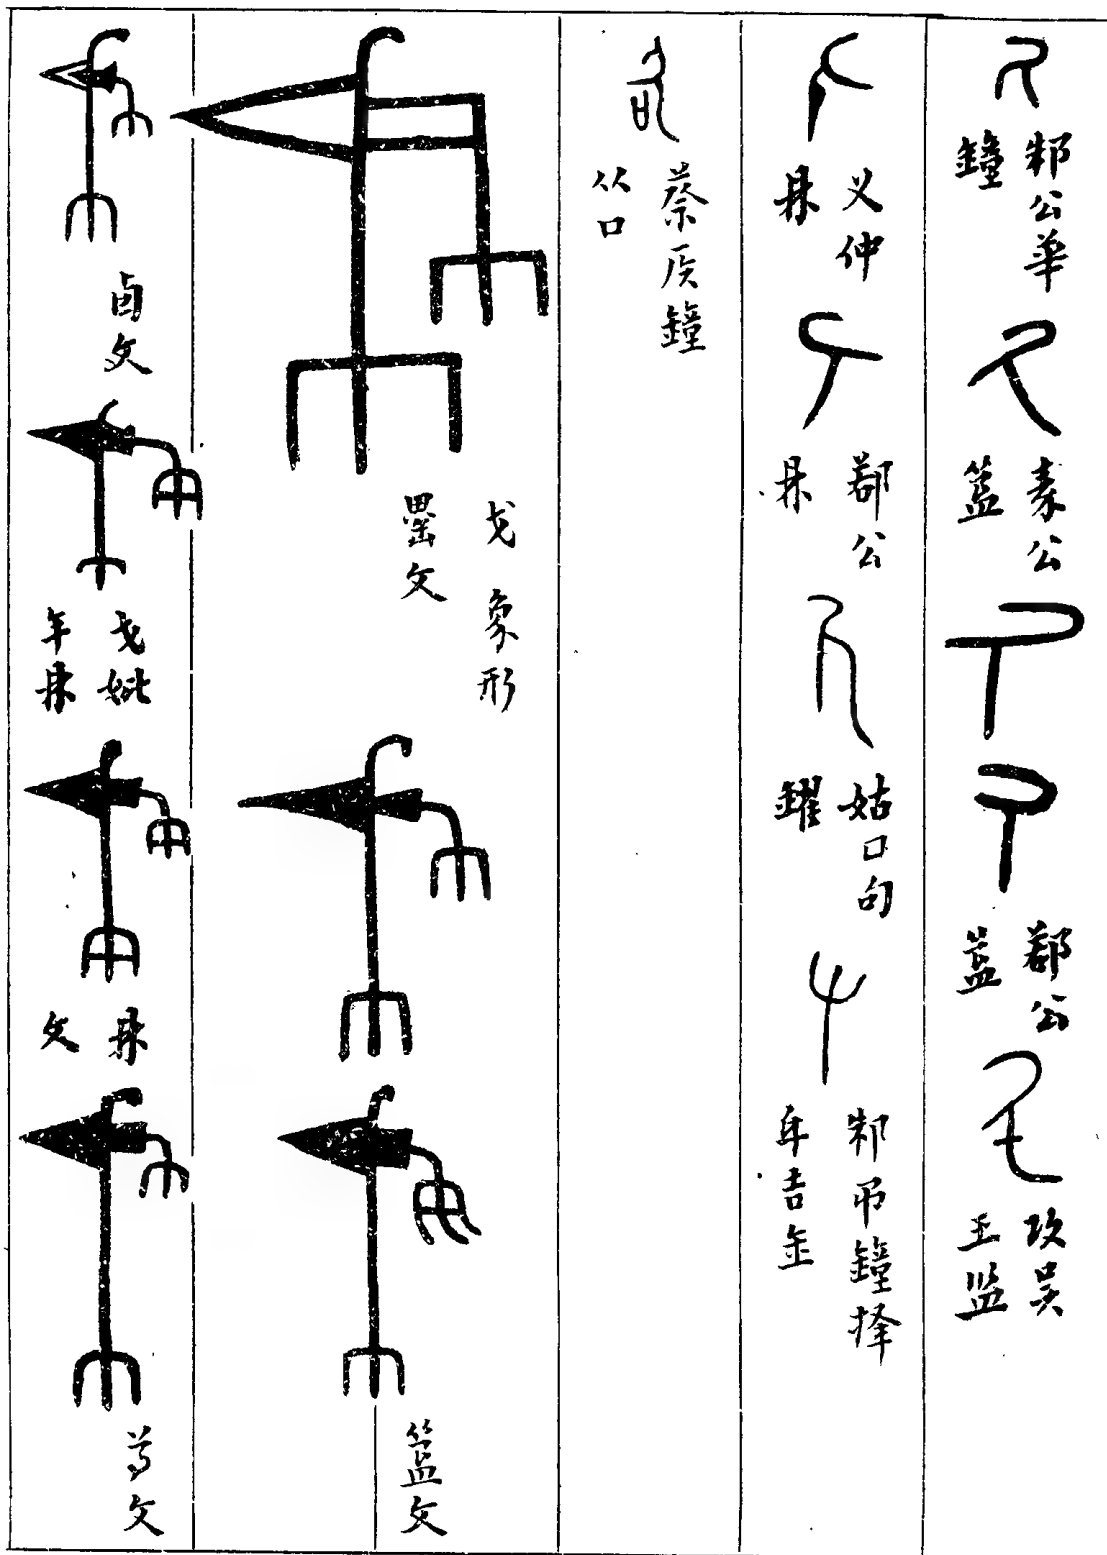 邾公華
鐘
秦公
簋
鄀公
簋
攻吳
王監
义仲
鼎
鄀公
鼎
姑口句
鑃
邾弔鐘擇
氒吉金
蔡矦鐘
从口
戈 象形
罍文
簋文
卣文
戈妣
辛鼎
鼎
文
尊文